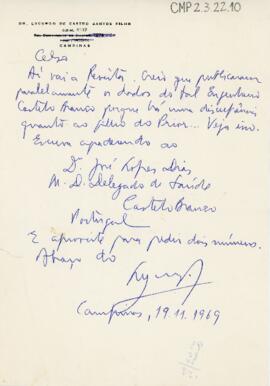 CMP 2.3.22.10
DR. LYCURGO DE CASTRO SANTOS FILHO
CAMPINAS
Celso
Aí vai a Revista. Creio que publicaram
paralelamente os dados do
Castelo Branco porque há uma discrepância
quanto ao filho do Prior... Veja isso.
Escreva agradecendo ao
Dr. José Lopes Dias
M. D. Delegado de Saúde
Castelo Branco
Portugal
E aproveite para pedir dois números.
Abraço do
Campinas, 19.11.1969